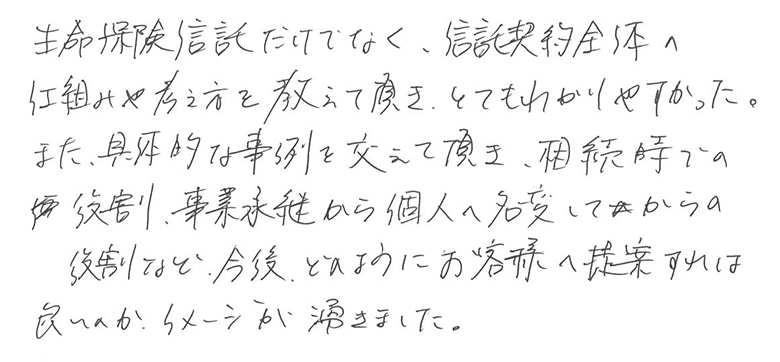 生命保険信託だけでなく、信託契約全体へ
仕組みや考え方を教えて頂き、とてもわかりやすかった。
また、具体的な事例を交えて頂き、相続時での
役割、事業承継から個人へ名変してからの
役割など、今後、どのようにお客様へ提案すれば
良いのか、イメージが湧きました。